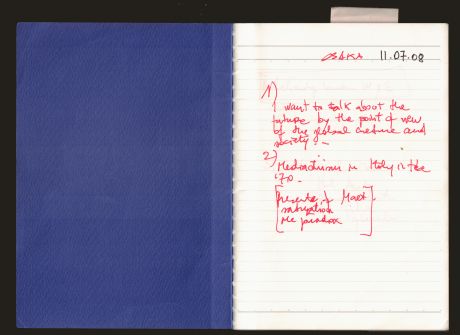 OSAKA 11.07.08
1)
I want to talk about the
future by the point of view
of the global culture and
society. -
2)
in Italy in the
'70 -
[Presente of
saturation